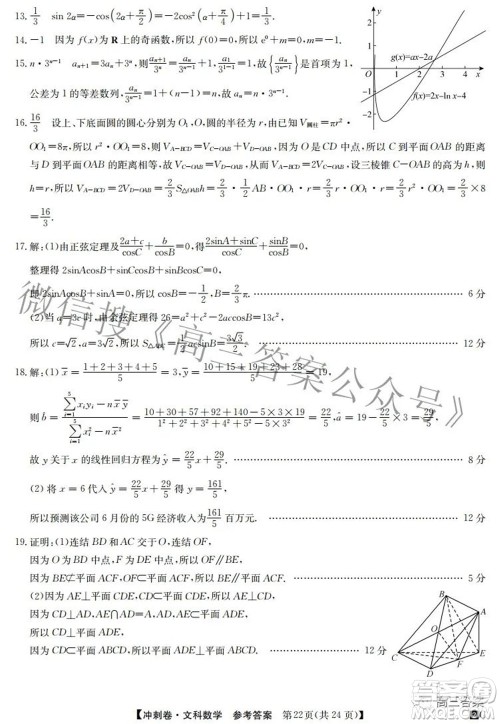 13. 1/3　sin 2α=−cos(2α+π/2)=−2cos²(α+π/4)+1=1/3.
14. −1　因为 f(x)为 R 上的奇函数,所以 f(0)=0,所以 e⁰+m=0,m=−1.
15. n·3ⁿ⁻¹　aₙ₊₁=3aₙ+3ⁿ,则 aₙ₊₁/3ⁿ=aₙ/3ⁿ⁻¹+1,a₁/3¹⁻¹=1,故{aₙ/3ⁿ⁻¹}是首项为1,
公差为1的等差数列,aₙ/3ⁿ⁻¹=1+(n−1)=n,故 aₙ=n·3ⁿ⁻¹.
y
2
1
O
1
2
3
4
x
−1
−2
g(x)=ax−2a
f(x)=2x−ln x−4
16. 16/3　设上、下底面圆的圆心分别为 O₁,O,圆的半径为 r,由已知 V圆柱=πr²·
OO₁=8π,所以 r²·OO₁=8,则 V_A−BCD=V_C−OAB+V_D−OAB,因为 O 是 CD 中点,所以 C 到平面 OAB
与 D 到平面 OAB 的距离相等,故 V_C−OAB=V_D−OAB,从而 V_A−BCD=2V_C−OAB,设三棱锥 C−OAB 的高为 h,则
h=r,所以 V_A−BCD=2V_D−OAB=2/3 S△OAB h=2/3·1/2 AB·OO₁·r=2/3·OO₁·r·r=2/3·OO₁·r²=2/3×8
=16/3.
17.解:(1)由正弦定理及(2a+c)/cosC+b/cosB=0得(2sinA+sinC)/cosC+sinB/cosB=0,
整理得 2sinAcosB+sinCcosB+sinBcosC=0,
即 2sinAcosB+sinA=0,所以 cosB=−1/2,B=2/3 π. 6 分
(2)当 a=3c 时,由余弦定理得 26=a²+c²−2accosB=13c²,
所以 c=√2,a=3√2,所以 S△ABC=1/2 acsinB=3√3/2. 12 分
18.解:(1)x̄=(1+2+3+4+5)/5=3,ȳ=(10+15+19+23+28)/5=19,
则 b̂=(∑xᵢyᵢ−n x̄ ȳ)/(∑xᵢ²−n x̄²)=(10+30+57+92+140−5×3×19)/(1²+2²+3²+4²+5²−5×3²)=22/5,â=19−22/5×3=29/5.
故 y 关于 x 的线性回归方程为 ŷ=22/5 x+29/5. 8 分
(2)将 x=6 代入 ŷ=22/5 x+29/5 得 ŷ=161/5,
所以预测该公司 6 月份的 5G 经济收入为 161/5 百万元. 12 分
19.证明:(1)连结 BD 和 AC 交于 O,连结 OF,
因为 O 为 BD 中点,F 为 DE 中点,所以 OF∥BE.
因为 BE⊄平面 ACF,OF⊂平面 ACF,所以 BE∥平面 ACF. 5 分
(2)因为 AE⊥平面 CDE,CD⊂平面 CDE,所以 AE⊥CD,
因为 CD⊥AD,AE∩AD=A,AD,AE⊂平面 DAE,
所以 CD⊥平面 ADE,
因为 CD⊂平面 ABCD,所以平面 ABCD⊥平面 ADE. 12 分
【冲刺卷·文科数学　参考答案　第22页(共24页)】
微信搜《高三答案公众号》
高三答案